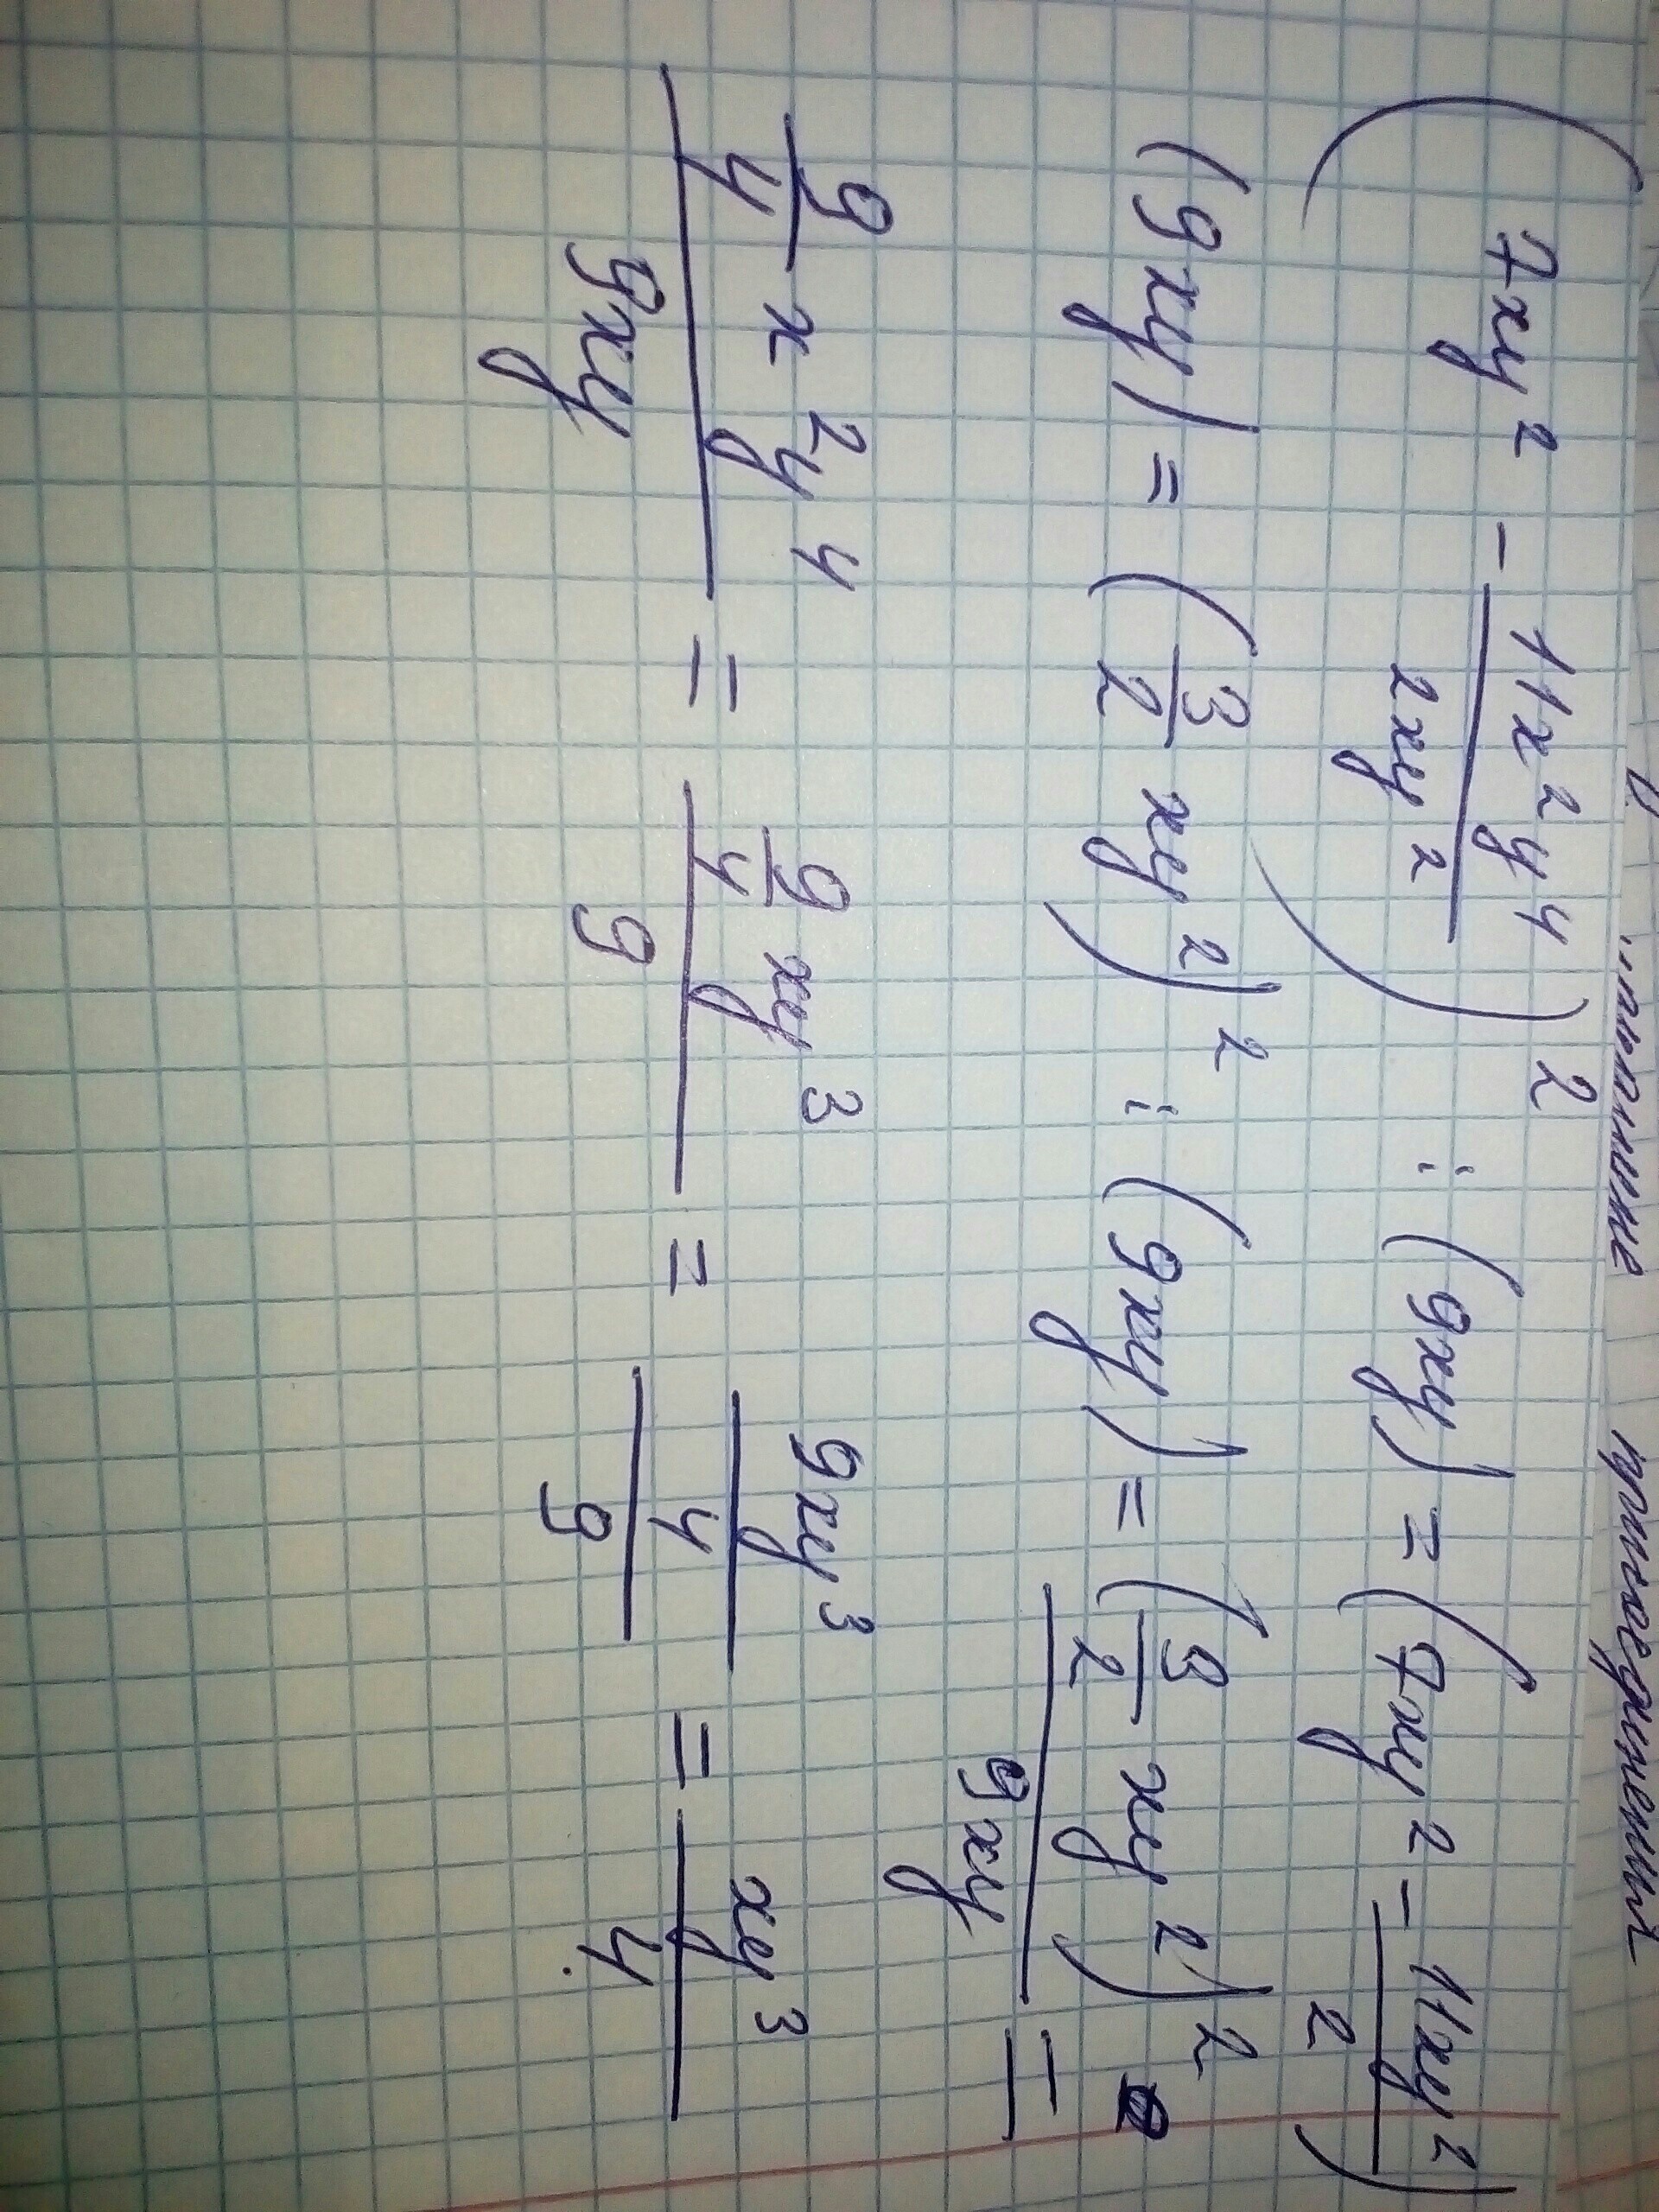 (7xy² - 11x²y⁴/2xy²)² : (9xy) = (7xy² - 11xy²/2)
(9xy) = (3/2 xy²)² : (9xy) = (3/2 xy²)²/9xy =
9/4 x²y⁴/9xy = 9/4 xy³/9 = 9xy³/4/9 = xy³/4.